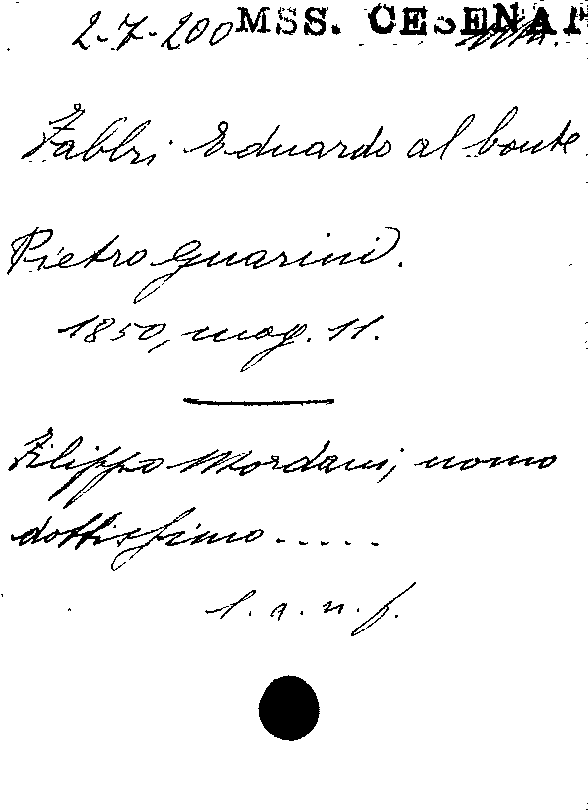 2-7-200 MSS. CESENAT
Fabbri Eduardo al conte
Pietro Guarini.
1850, mag. 11.
Filippo Mordani, uomo
dottissimo.....
l. a. n. f.